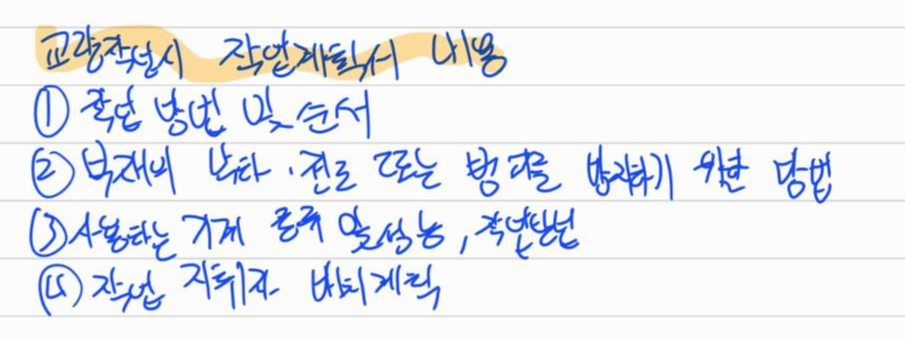 교량작업시 작업계획서 내용
① 작업 방법 및 순서
② 부재의 낙하·전도 또는 붕괴를 방지하기 위한 방법
③ 사용하는 기계 종류 및 성능, 작업방법
④ 작업 지휘자 배치계획